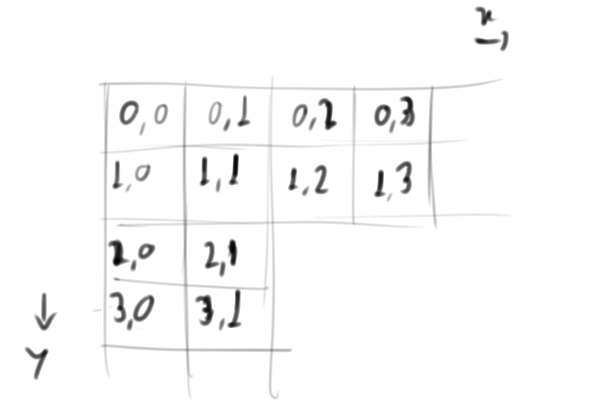 x
0,0 0,1 0,2 0,3
1,0 1,1 1,2 1,3
2,0 2,1
3,0 3,1
Y